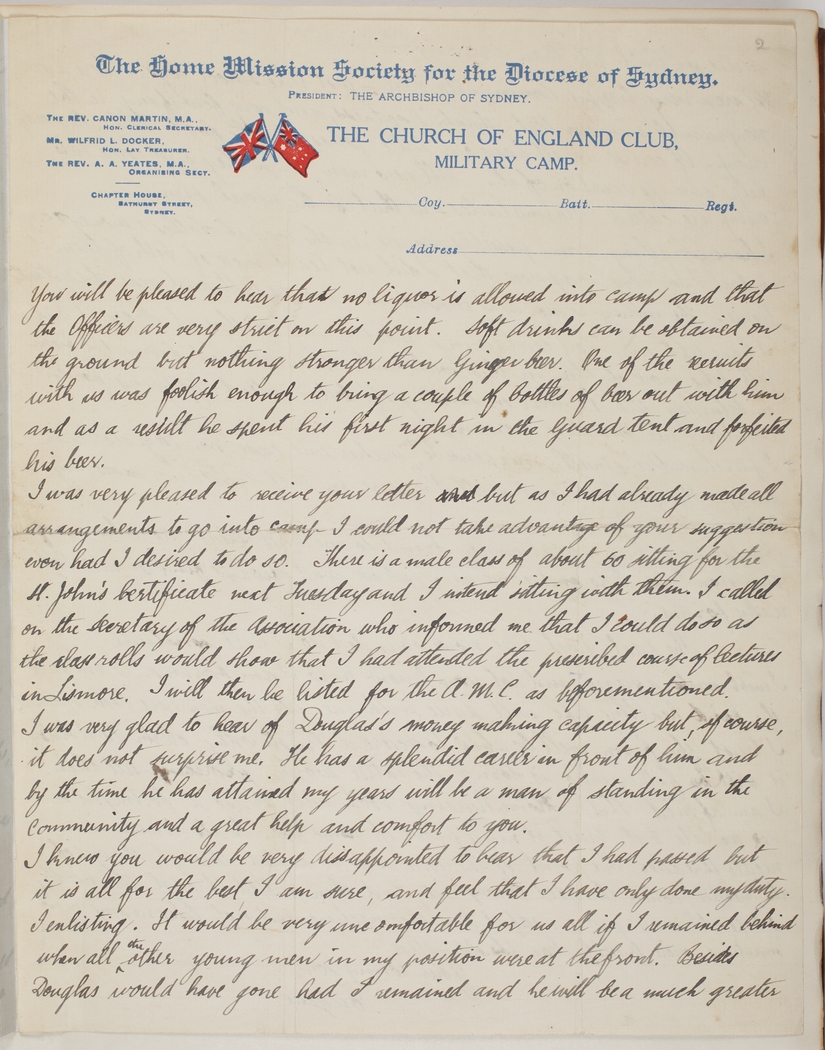 2
The Home Mission Society for the Diocese of Sydney.
PRESIDENT: THE ARCHBISHOP OF SYDNEY.
THE REV. CANON MARTIN, M.A.,
HON. CLERICAL SECRETARY.
MR. WILFRID L. DOCKER,
HON. LAY TREASURER.
THE REV. A. A. YEATES, M.A.,
ORGANISING SECT.
CHAPTER HOUSE,
BATHURST STREET,
SYDNEY.
THE CHURCH OF ENGLAND CLUB,
MILITARY CAMP.
Coy. Batt. Regt.
Address
You will be pleased to hear that no liquor is allowed into camp and that
the Officers are very strict on this point. Soft drinks can be obtained on
the ground but nothing stronger than Ginger beer. One of the recruits
with us was foolish enough to bring a couple of bottles of beer out with him
and as a result he spent his first night in the Guard tent and forfeited
his beer.
I was very pleased to receive your letter and but as I had already made all
arrangements to go into camp I could not take advantage of your suggestion
even had I desired to do so. There is a male class of about 60 sitting for the
St. John's Certificate next Tuesday and I intend sitting with them. I called
on the Secretary of the Association who informed me that I could do so as
the class rolls would show that I had attended the prescribed course of lectures
in Lismore. I will then be listed for the A.M.C. as beforementioned.
I was very glad to hear of Douglas's money making capacity but, of course,
it does not surprise me. He has a splendid career in front of him and
by the time he has attained my years will be a man of standing in the
community and a great help and comfort to you.
I knew you would be very dissappointed to hear that I had passed but
it is all for the best, I am sure, and feel that I have only done my duty.
I enlisting. It would be very uncomfortable for us all if I remained behind
when all the other young men in my position were at the front. Besides
Douglas would have gone had I remained and he will be a much greater